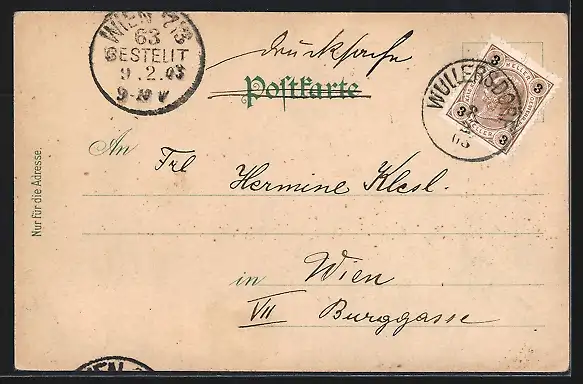 WIEN 7/3
63
BESTELLT
9.2.03
9-10 V
Drucksache
Postkarte
3 3
HELLER
3 3
WULLERSDORF
03
An Frl Hermine Klesl.
in Wien
VII Burggasse
Nur für die Adresse.